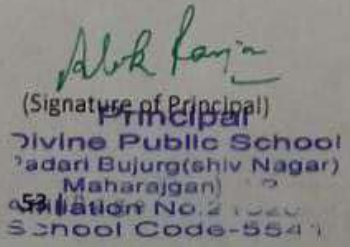 Alok Ranjan
(Signature of Principal)
Principal
Divine Public School
Padari Bujurg(shiv Nagar)
Maharajganj
53
Affiliation No.2
School Code-554